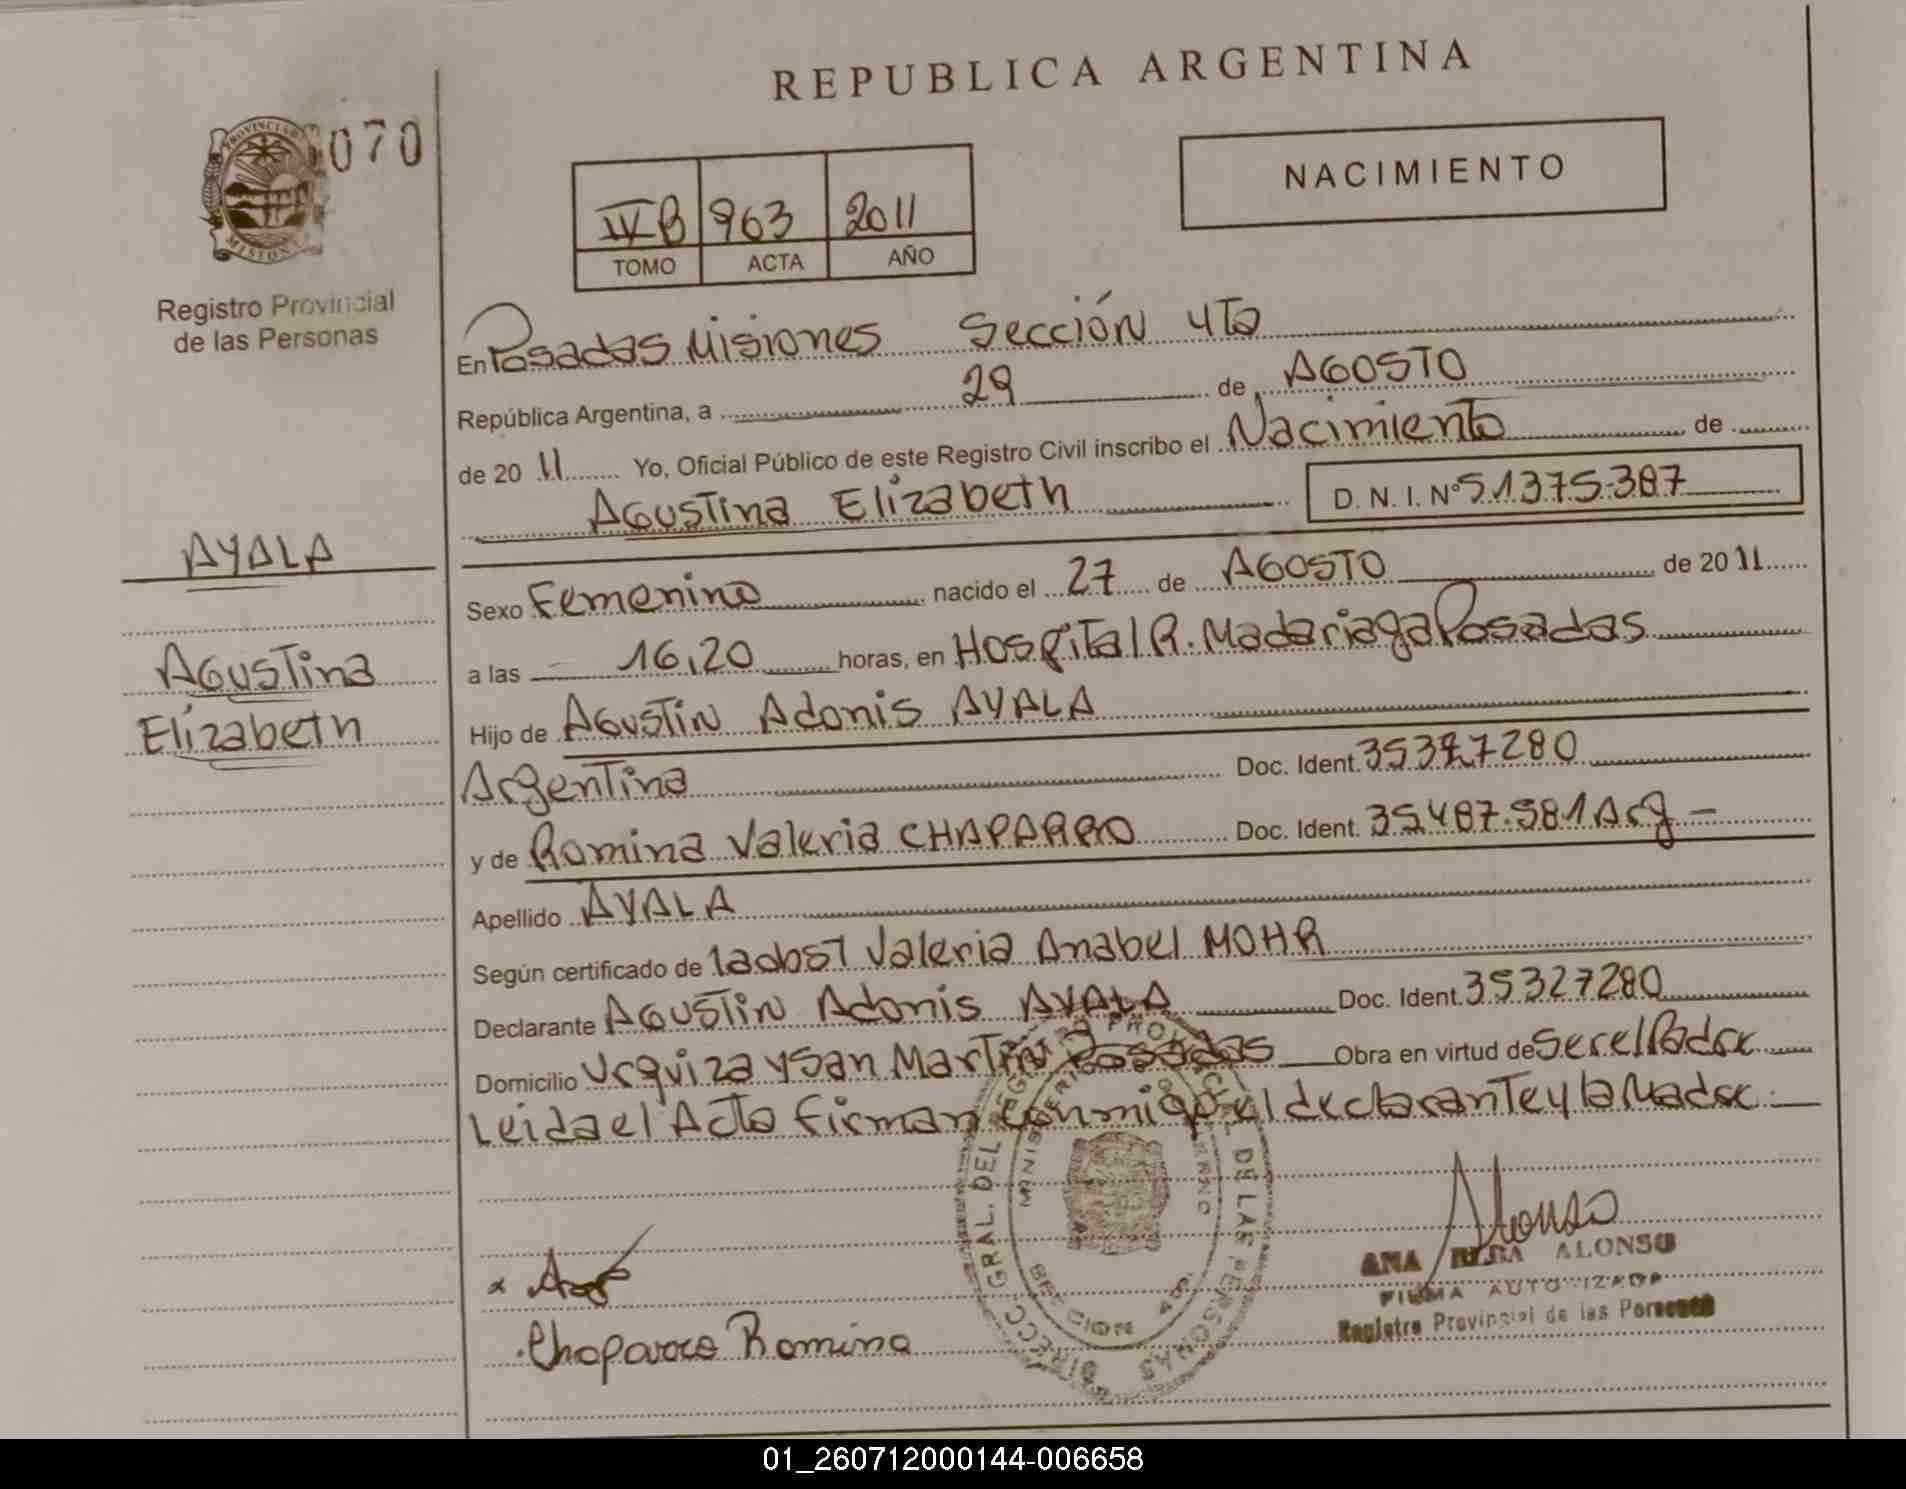 REPUBLICA ARGENTINA
070
PROVINCIA D
MISION
Registro Provincial
de las Personas
NACIMIENTO
IVB 963 2011
TOMO ACTA AÑO
En Posadas Misiones Sección 4Ta
República Argentina, a 29 de AGOSTO
de 20 11 Yo, Oficial Público de este Registro Civil inscribo el Nacimiento de
Agustina Elizabeth D. N. I. Nº 51375-387
AYALA
Agustina
Elizabeth
Sexo Femenino nacido el 27 de AGOSTO de 20 11
a las 16,20 horas, en Hospital R. Madariaga Posadas
Hijo de Agustin Adonis AYALA
Argentina Doc. Ident. 35327280
y de Romina Valeria CHAPARRO Doc. Ident. 35487.581 Arg -
Apellido AYALA
Según certificado de la obst Valeria Anabel MOHR
Declarante Agustin Adonis AYALA Doc. Ident. 35327280
Domicilio Urquiza y San Martin Posadas Obra en virtud de ser el Padre
Leida el Acta firman conmigo el declarante y la Madre
DIRECC. GRAL. DEL REG. PROVINCIAL DE LAS PERSONAS
SECCION 4a.
Alonso
ANA ELBA ALONSO
FIRMA AUTORIZADA
Registro Provincial de las Personas
Chaparro Romina
01_260712000144-006658